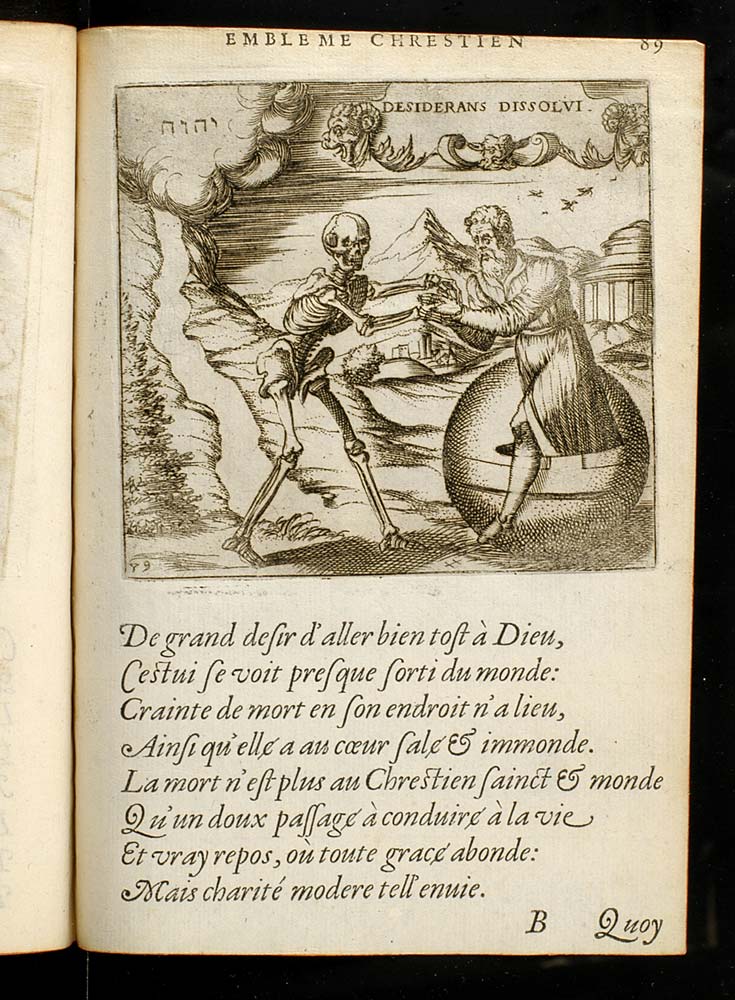 EMBLEME CHRESTIEN 89
יהוה
DESIDERANS DISSOLVI.
De grand deſir d'aller bien toſt à Dieu,
Ceſtui ſe voit preſque ſorti du monde:
Crainte de mort en ſon endroit n'a lieu,
Ainſi qu'ellɇ a au cœur ſalɇ & immonde.
La mort n'eſt plus au Chreſtien ſainct & monde
Qu'un doux paſſagɇ à conduirɇ à la vie
Et vray repos, où toute gracɇ abonde:
Mais charité modere tell' enuie.
B Quoy